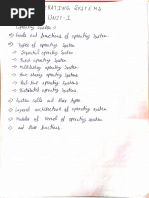 OPERATING SYSTEMS
UNIT-I
Operating System :-
=> Goals and functions of operating System
=> Types of operating System
-> Sequential operating System
-> Batch operating System
-> Multitasking operating System
-> Time sharing operating System
-> Real-time operating Systems
-> Distributed operating System
=> System calls and their types
=> Layered architecture of operating System
=> Modules of kernel of operating System
and their functions